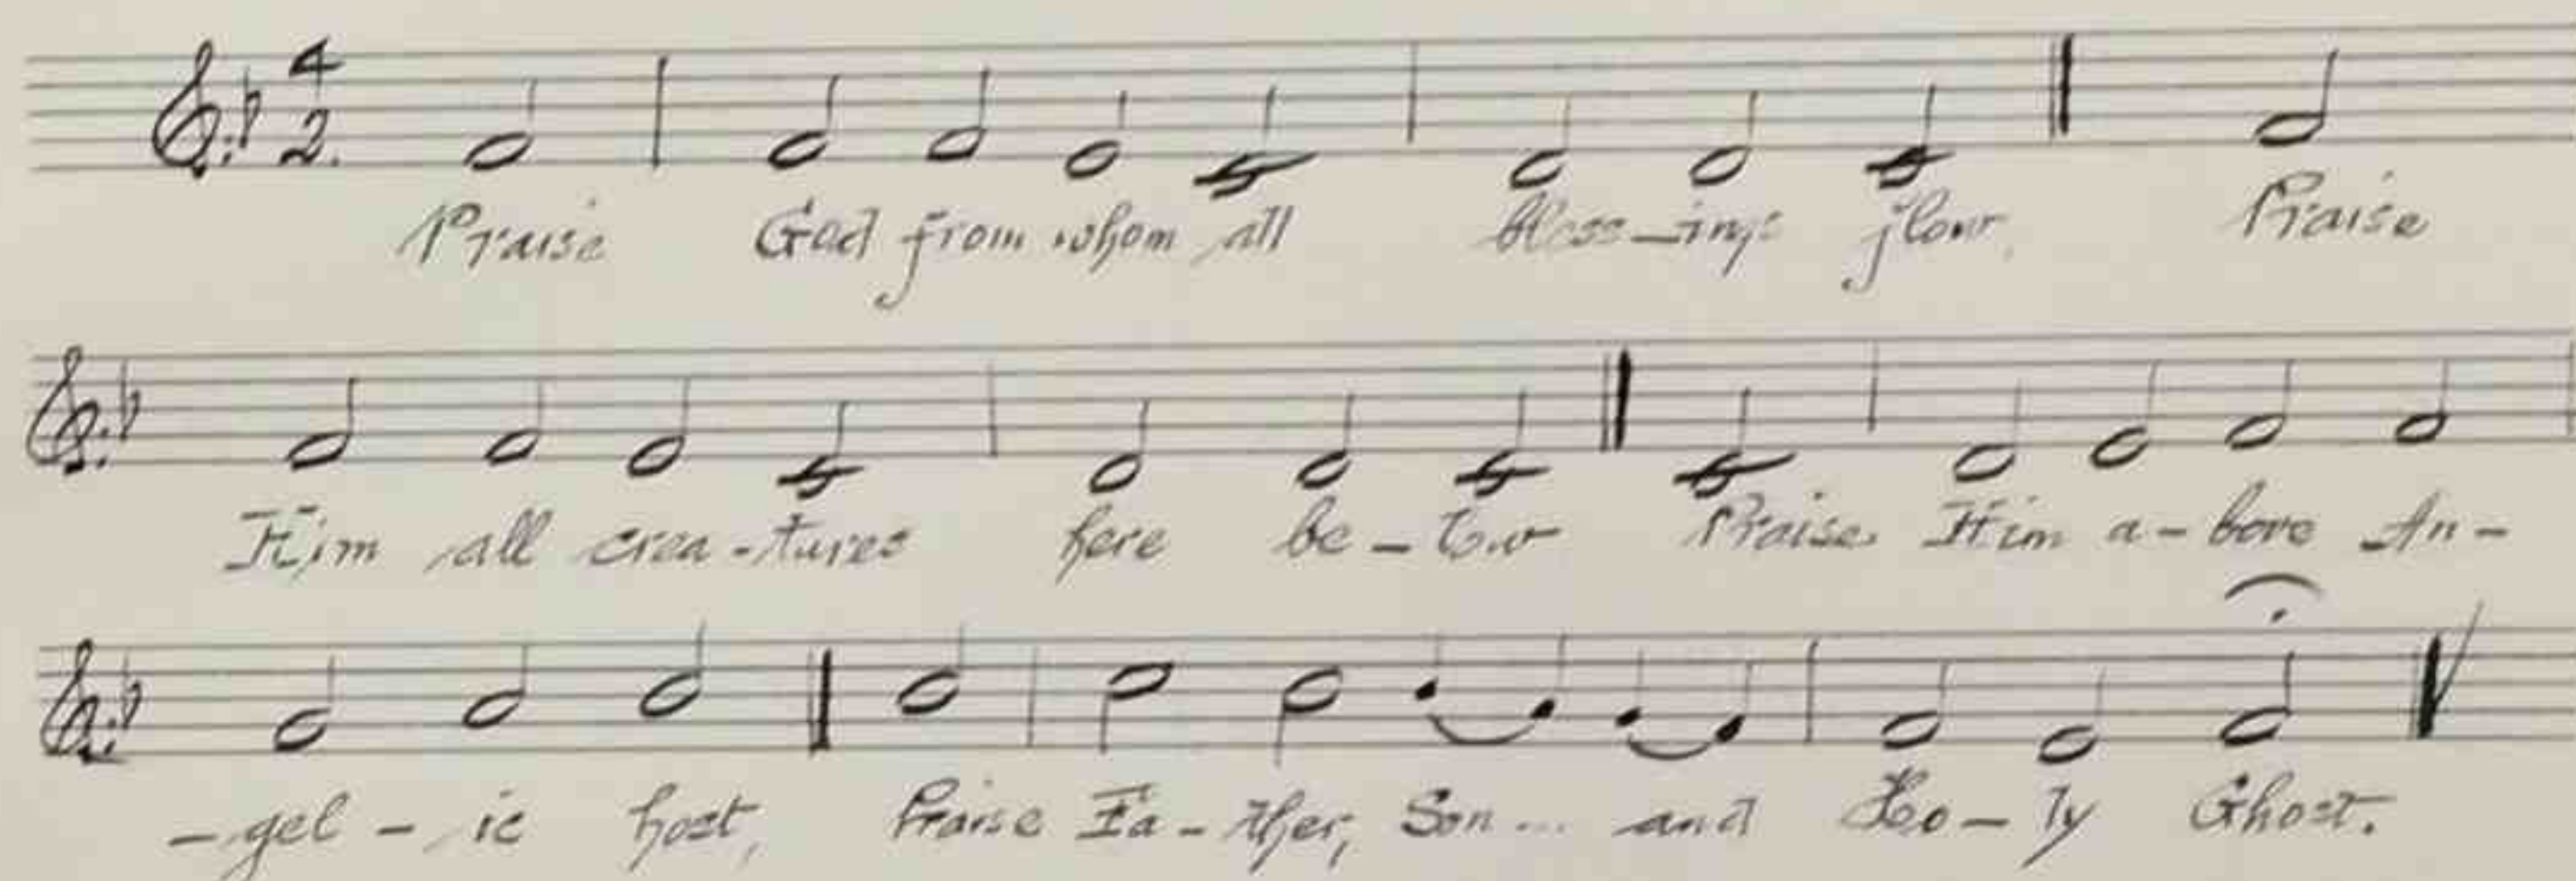 4
2.
Praise God from whom all bless-ings flow, Praise
Him all crea-tures here be-low Praise Him a-bove An-
-gel-ic host, Praise Fa-ther, Son... and Ho-ly Ghost.